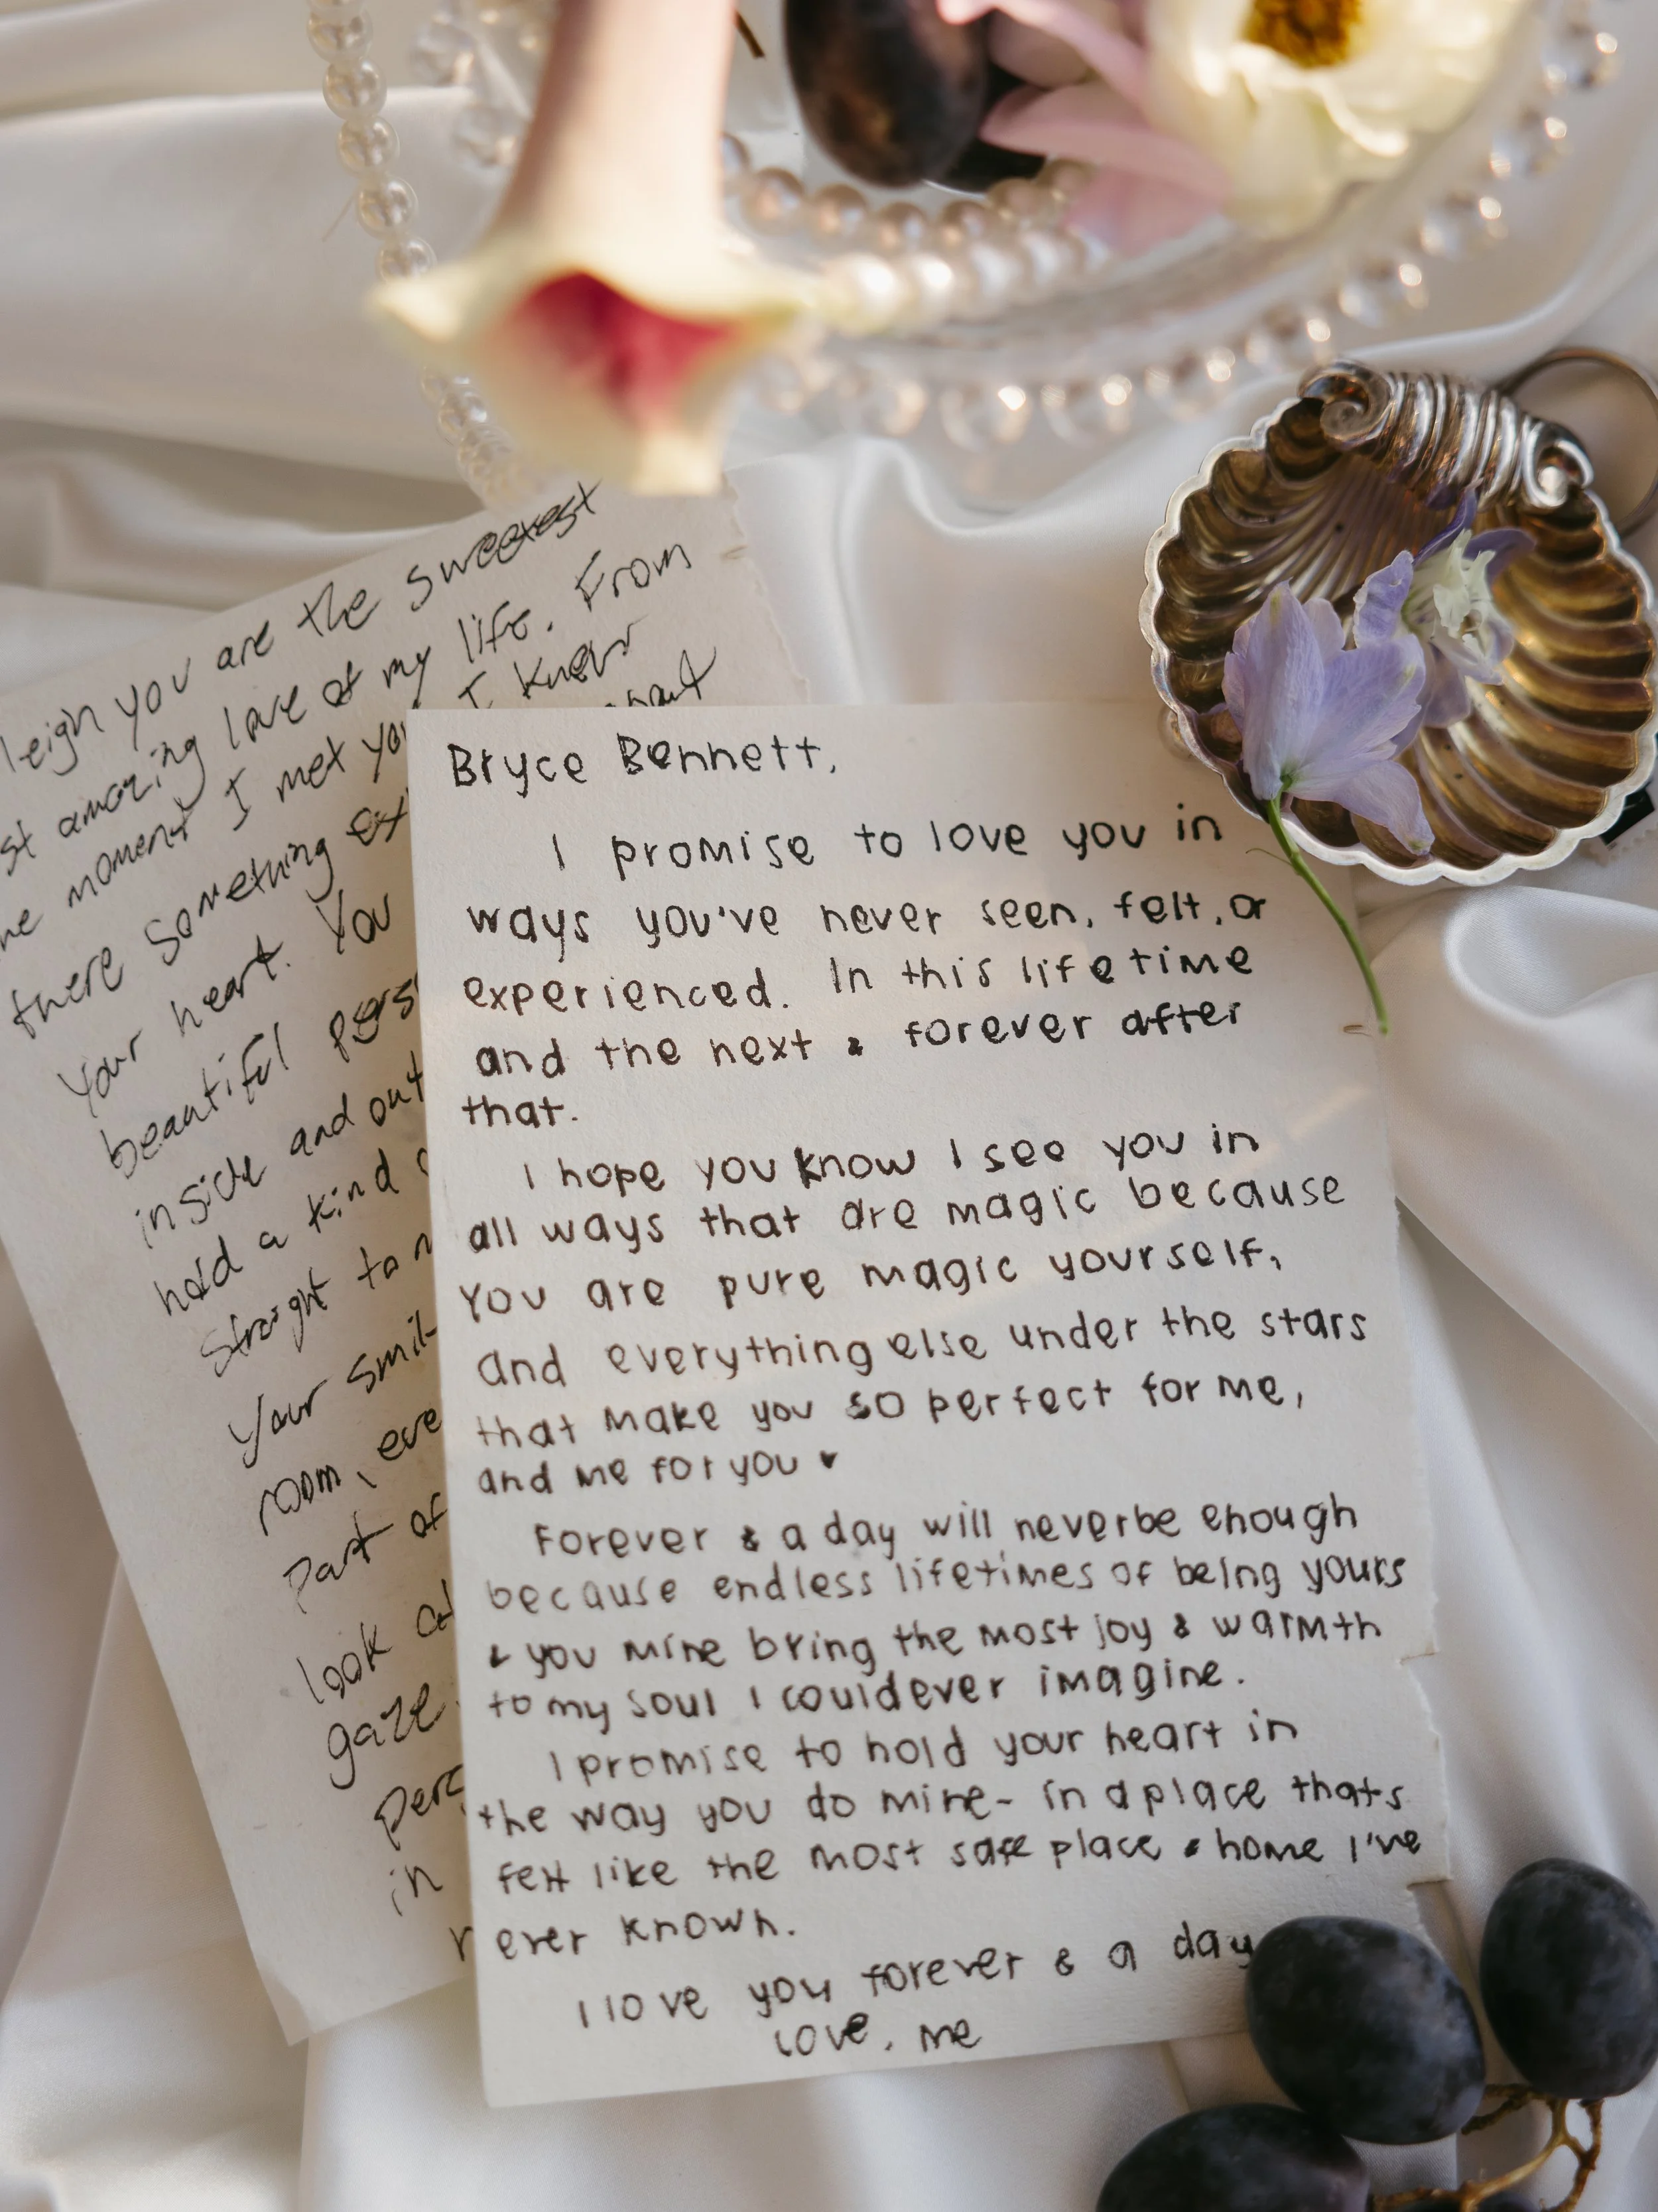 leigh you are the sweetest
st amazing love of my life. From
he moment I met you I knew
there something
your heart. You
beautiful pers
inside and out
hold a kind
straight to
Your smil
room, eve
part of
look
gaze
pers
in
Bryce Bennett,
I promise to love you in
ways you've never seen, felt, or
experienced. In this lifetime
and the next & forever after
that.
I hope you know I see you in
all ways that are magic because
you are pure magic yourself,
and everything else under the stars
that make you so perfect for me,
and me for you ♥
Forever & a day will never be enough
because endless lifetimes of being yours
& you mine bring the most joy & warmth
to my soul I could ever imagine.
I promise to hold your heart in
the way you do mine- in a place thats
felt like the most safe place & home I've
ever known.
I love you forever & a day
Love, me